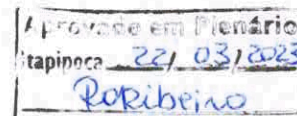 Aprovado em Plenário
Itapipoca 22/ 03/2023
RoRibeiro